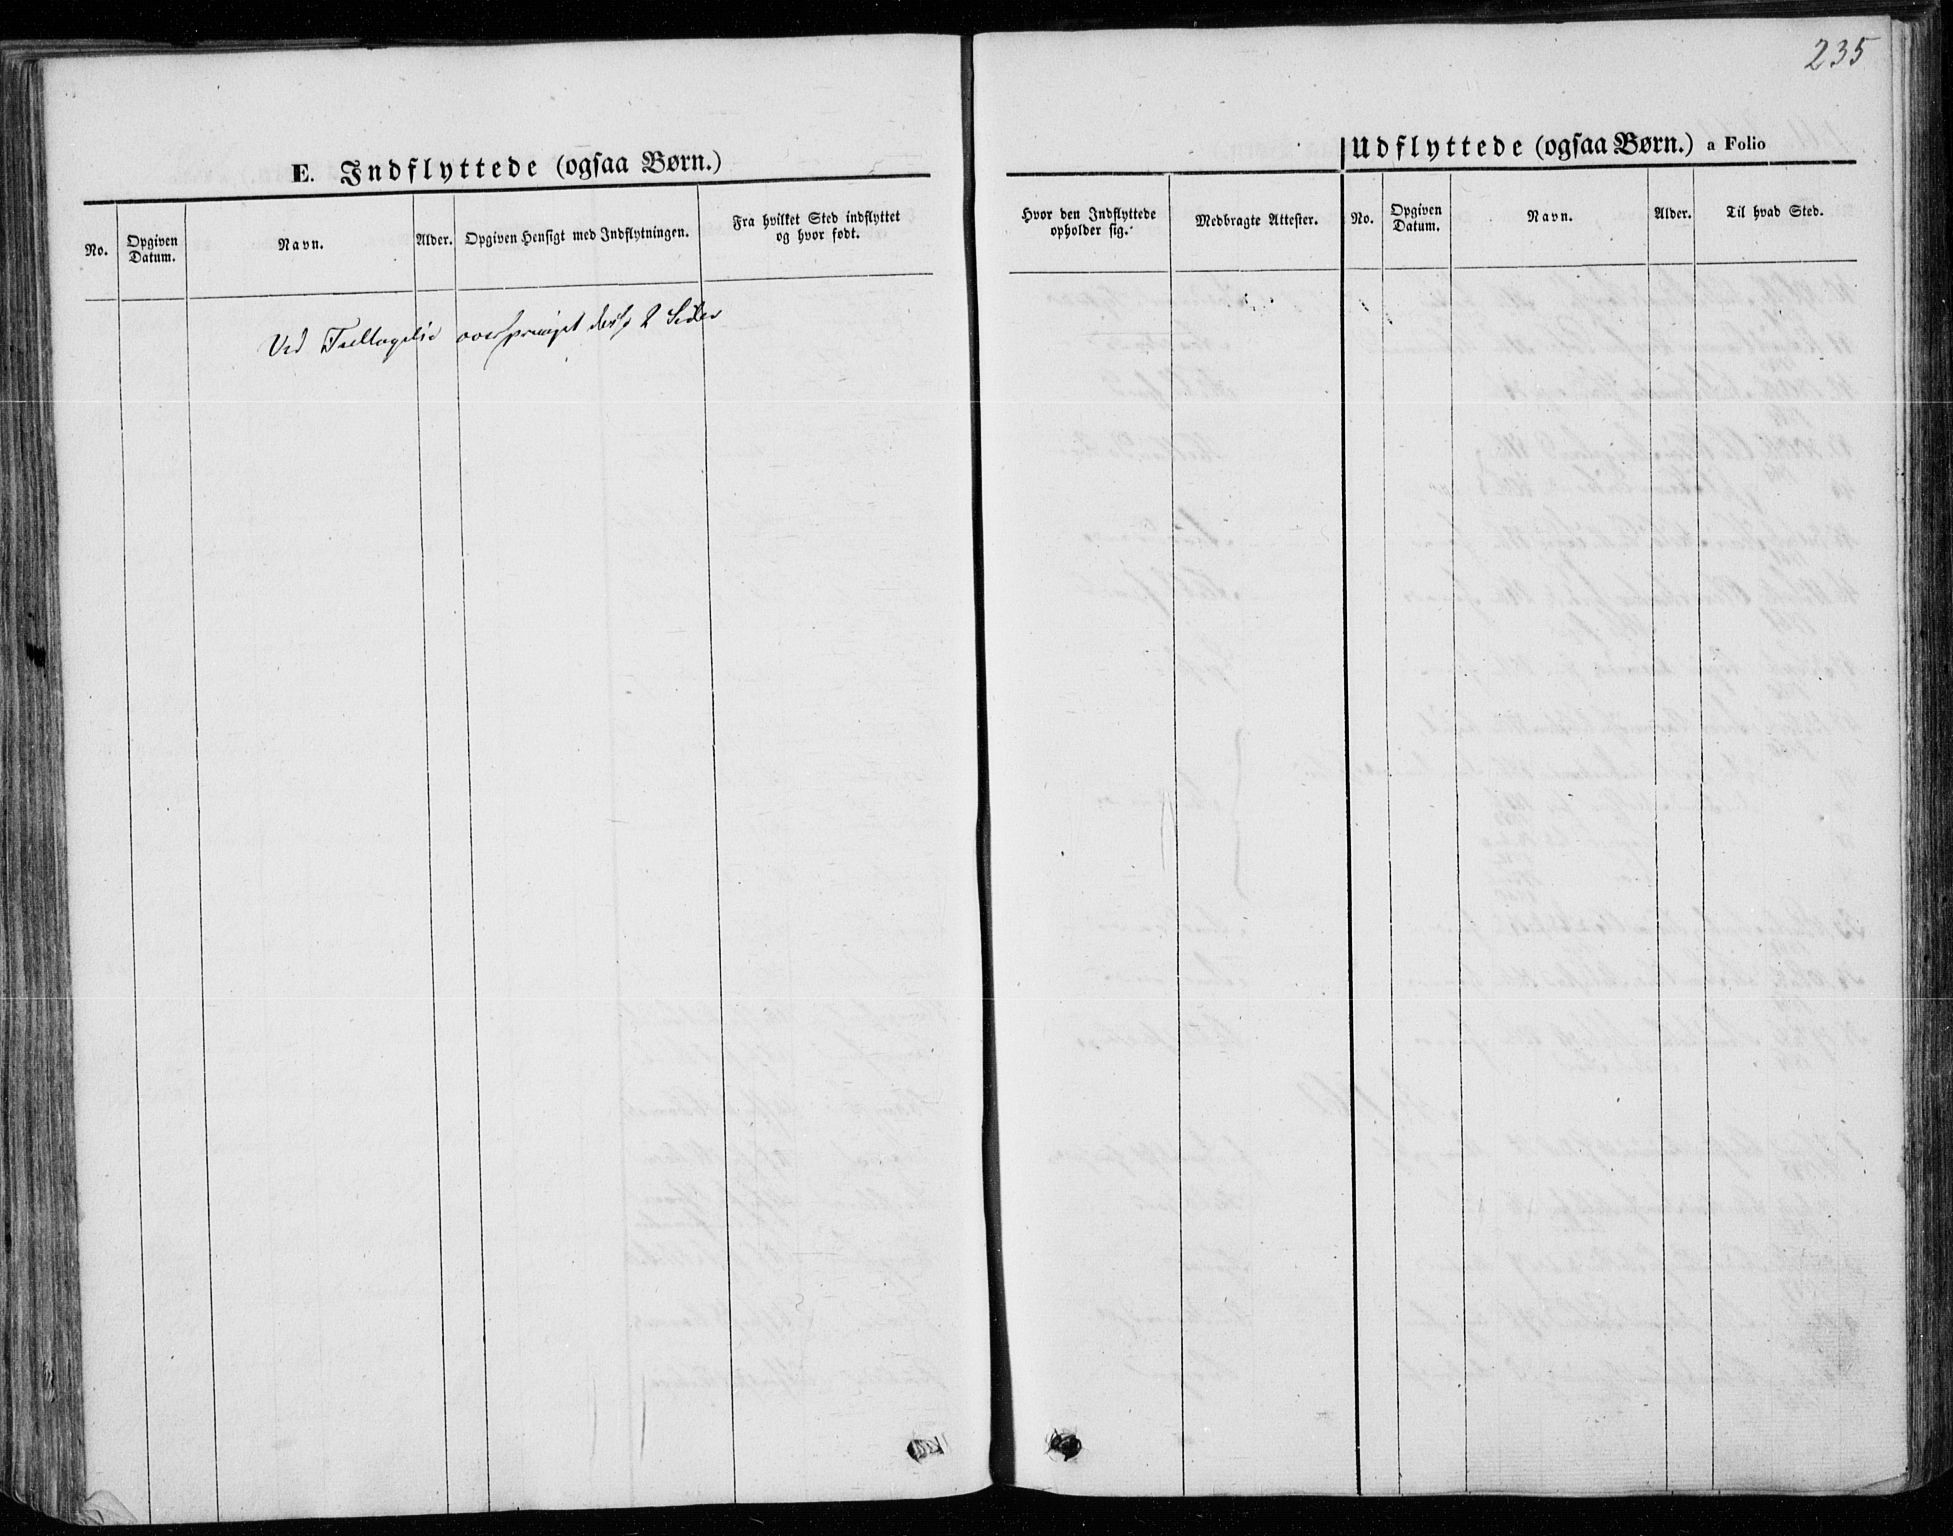 235
E. Indflyttede (ogsaa Børn.)
No.
Opgiven Datum.
Navn.
Alder.
Opgiven Hensigt med Indflytningen.
Fra hvilket Sted indflyttet
og hvor født.
Ved Feiltagelse oversprunget disse 2 Sider
Udflyttede (ogsaa Børn.) a Folio
Hvor den Indflyttede
opholder sig.
Medbragte Attester.
No.
Opgiven Datum.
Navn.
Alder.
Til hvad Sted.